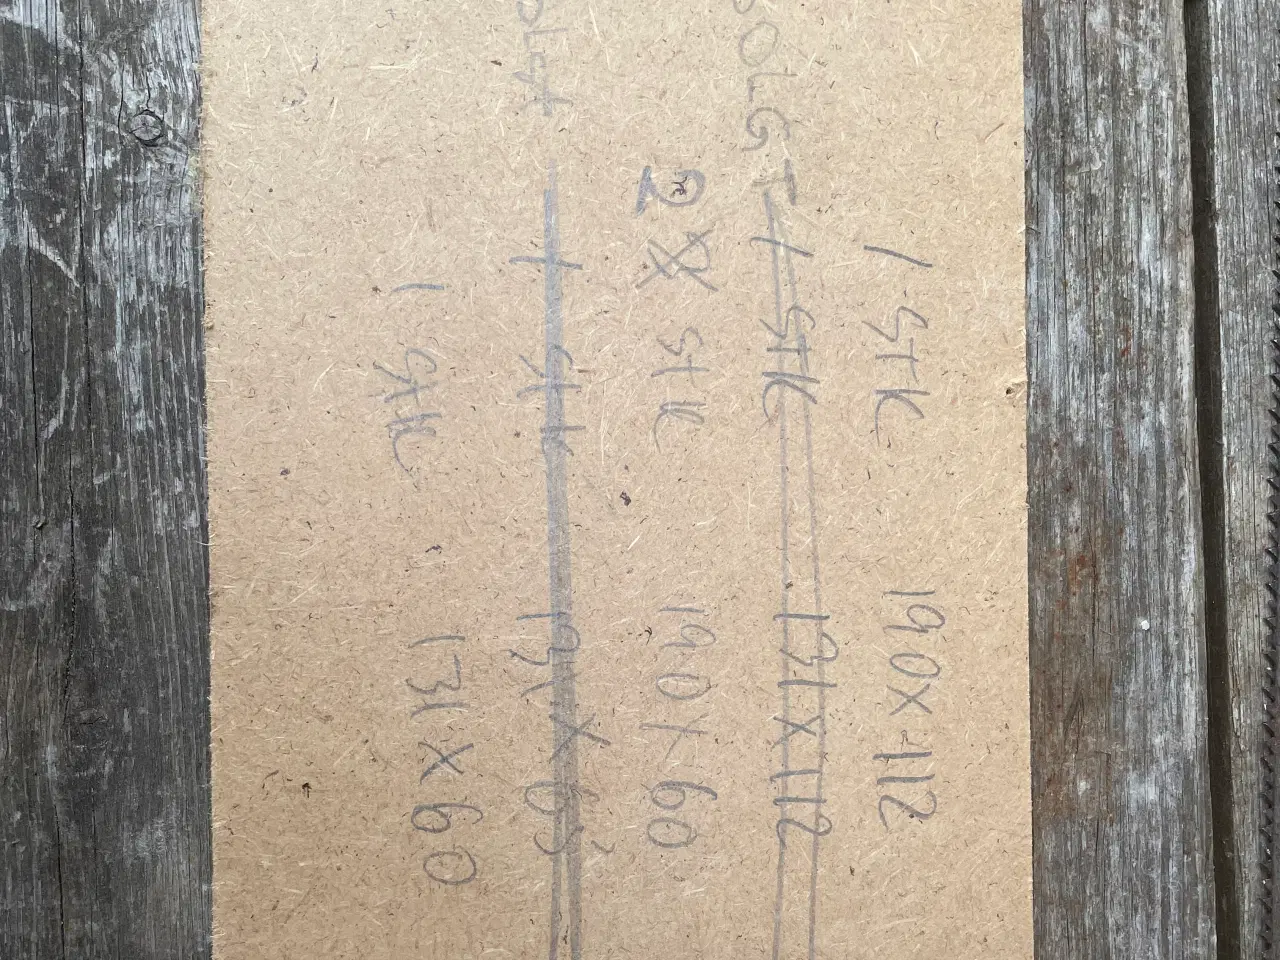 1 STK 190X112
SOLGT 1 STK 131X112
2 X STK 190X60
1 STK
1 STK 131X60